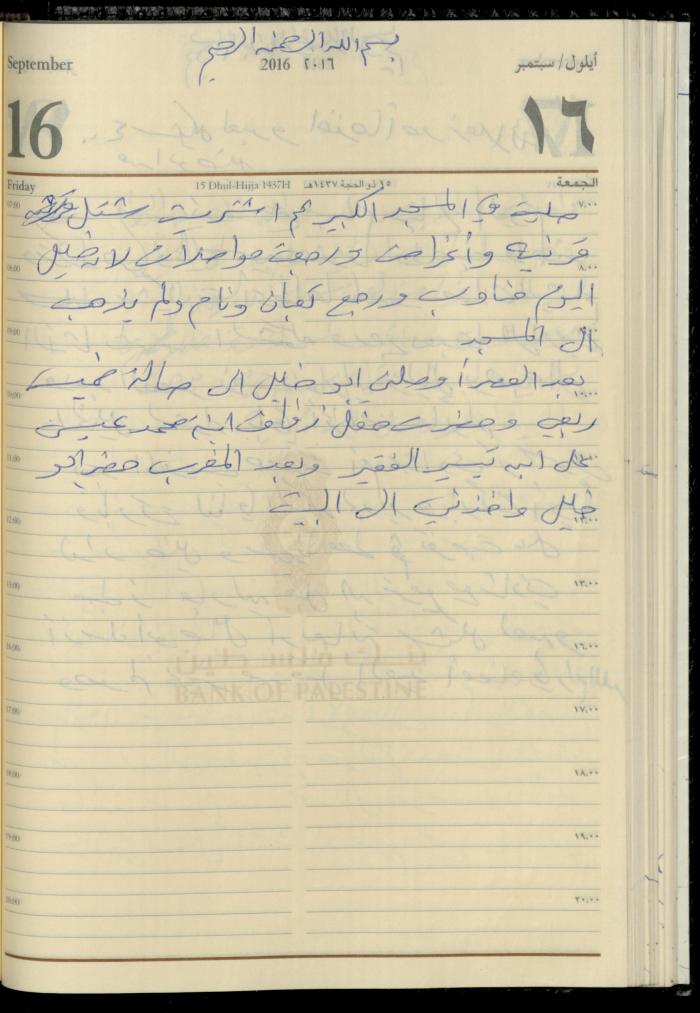 بسم الله الرحمن الرحيم
September
2016 ٢٠١٦
أيلول/سبتمبر
16
١٦
Friday
15 Dhul-Hijja 1437H
١٥ ذو الحجة ١٤٣٧هـ
الجمعة
صليت في المسجد الكبير ثم اشتريت شتل
قرنبيه وأغراض ورجعت مواصلات لانه خليل
اليوم مناوب ورجع تعبان ونام ولم يذهب
الى المسجد
بعد العصر أوصلني ابو خليل الى صالة خميس
ربعي وحضرت حفل زفاف ابنة محمد عيسى
على ابن تيسير الفقير وبعد المغرب حضر ابو
خليل واخذني الى البيت
07:00
٧:٠٠
08:00
٨:٠٠
09:00
10:00
١٠:٠٠
11:00
12:00
١٢:٠٠
13:00
١٣:٠٠
14:00
١٤:٠٠
بنك فلسطين
BANK OF PALESTINE
17:00
١٧:٠٠
18:00
١٨:٠٠
19:00
١٩:٠٠
20:00
٢٠:٠٠